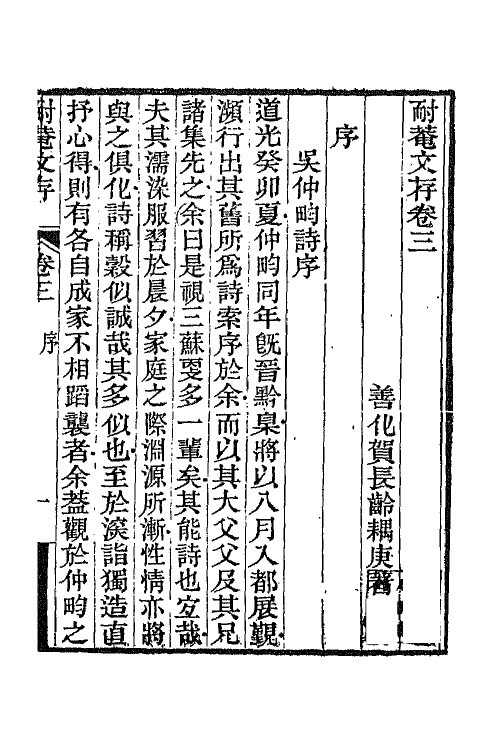 耐菴文存卷三
善化賀長齡耦庚著
序
吳仲畇詩序
道光癸卯夏仲畇同年旣晉黔臬將以八月入都展覲
瀕行出其舊所爲詩索序於余而以其大父父及其兄
諸集先之余曰是視三蘇更多一輩矣其能詩也宜哉
夫其濡染服習於晨夕家庭之際淵源所漸性情亦將
與之俱化詩稱穀似誠哉其多似也至於深詣獨造直
抒心得則有各自成家不相蹈襲者余葢觀於仲畇之
耐菴文存
卷三
序
一